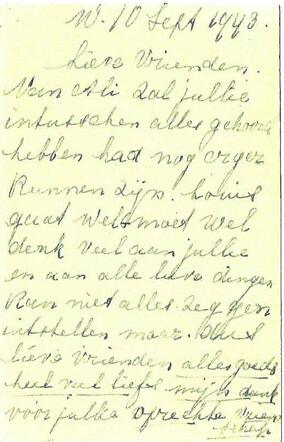 W. 10 Sept 1943.
Lieve Vrienden.
Van Ali zal jullie
intusschen alles gehoord
hebben had nog erger
kunnen zijn. Louis
gaat wel moet wel
denk veel aan jullie
en aan alle lieve dingen
kan niet alles zeggen
uitstellen maar. Dus
lieve vrienden alles goeds
heel veel liefs mijn dank
voor jullie oprechte vriend
schap